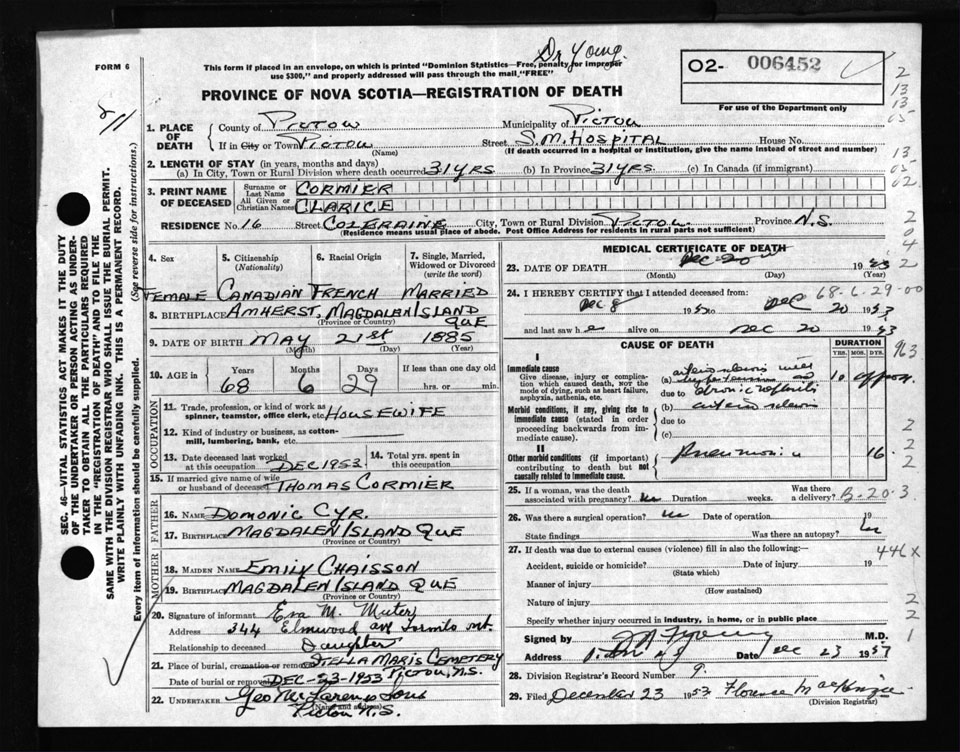 Dr Young
FORM 6
This form if placed in an envelope, on which is printed "Dominion Statistics—Free, penalty for improper
use $300," and properly addressed will pass through the mail "FREE"
O2- 006452
PROVINCE OF NOVA SCOTIA—REGISTRATION OF DEATH
For use of the Department only
1. PLACE OF DEATH
County of Pictou Municipality of Pictou
If in City or Town Pictou Street S.M. Hospital House No.
(Name) (If death occurred in a hospital or institution, give the name instead of street and number)
2. LENGTH OF STAY (in years, months and days)
(a) In City, Town or Rural Division where death occurred 31 yrs (b) In Province 31 yrs. (c) In Canada (if immigrant)
3. PRINT NAME OF DECEASED
Surname or Last Name CORMIER
All Given or Christian Names CLARICE
RESIDENCE No. 16 Street COLERAINE City, Town or Rural Division PICTOU Province N.S.
(Residence means usual place of abode. Post Office Address for residents in rural parts not sufficient)
4. Sex 5. Citizenship (Nationality) 6. Racial Origin 7. Single, Married, Widowed or Divorced (write the word)
FEMALE CANADIAN FRENCH MARRIED
8. BIRTHPLACE AMHERST, MAGDALEN ISLAND QUE
(Province or Country)
9. DATE OF BIRTH MAY 21st 1885
(Month) (Day) (Year)
10. AGE in Years Months Days If less than one day old
68 6 29 hrs. or min.
OCCUPATION
11. Trade, profession, or kind of work as spinner, teamster, office clerk, etc. HOUSEWIFE
12. Kind of industry or business, as cotton-mill, lumbering, bank, etc.
13. Date deceased last worked at this occupation DEC 1953 14. Total yrs. spent in this occupation
15. If married give name of wife or husband of deceased THOMAS CORMIER
FATHER
16. NAME DOMONIC CYR.
17. BIRTHPLACE MAGDALEN ISLAND QUE
(Province or Country)
MOTHER
18. MAIDEN NAME EMILY CHAISSON
19. BIRTHPLACE MAGDALEN ISLAND QUE
(Province or Country)
20. Signature of informant Eva M. Muter
Address 344 Elmwood ave Toronto Ont.
Relationship to deceased Daughter
21. Place of burial, cremation or removal STELLA MARIS CEMETERY
Date of burial or removal DEC-23-1953 PICTOU, N.S.
22. UNDERTAKER Geo McLaren & Sons
(Name and address) Pictou N.S.
MEDICAL CERTIFICATE OF DEATH
23. DATE OF DEATH Dec 20 1953
(Month) (Day) (Year)
24. I HEREBY CERTIFY that I attended deceased from: 68-6-29-00
Dec 8 1953 to Dec 20 1953
and last saw h er alive on Dec 20 1953
CAUSE OF DEATH DURATION
YRS. MOS. DYS.
I
Immediate cause
Give disease, injury or complication which caused death, NOT the mode of dying, such as heart failure, asphyxia, asthenia, etc.
(a) hypertension 10 approx.
due to chronic nephritis
Morbid conditions, if any, giving rise to immediate cause (stated in order proceeding backwards from immediate cause).
(b)
due to
(c)
II
Other morbid conditions (if important) contributing to death but not causally related to immediate cause.
Pneumonia 16
25. If a woman, was the death associated with pregnancy? no Duration weeks. Was there a delivery? B-20-3
26. Was there a surgical operation? no Date of operation 19
State findings Was there an autopsy? no
27. If death was due to external causes (violence) fill in also the following:— 446X
Accident, suicide or homicide? Date of injury 19
(State which)
Manner of injury
(How sustained)
Nature of injury
Specify whether injury occurred in industry, in home, or in public place
Signed by Young M.D.
Address Pictou NS Date Dec 23 1957
28. Division Registrar's Record Number 9.
29. Filed December 23 1953 Florence MacKenzie
(Division Registrar)
SEC. 46—VITAL STATISTICS ACT MAKES IT THE DUTY
OF THE UNDERTAKER OR PERSON ACTING AS UNDERTAKER
TO OBTAIN ALL THE PARTICULARS REQUIRED
IN THE "REGISTRATION OF DEATH" AND TO FILE THE
SAME WITH THE DIVISION REGISTRAR WHO SHALL ISSUE THE BURIAL PERMIT.
WRITE PLAINLY WITH UNFADING INK. THIS IS A PERMANENT RECORD.
Every item of information should be carefully supplied. (See reverse side for instructions.)
2
13
13
05
13
05
02
2
0
4
2
963
2
2
2
2
2
1